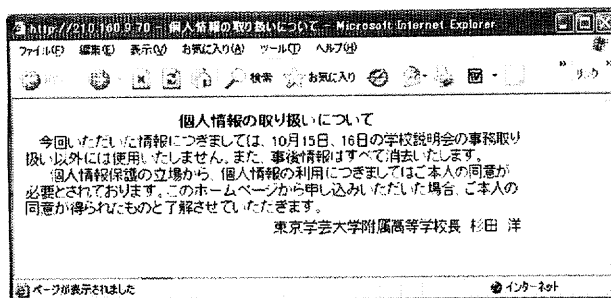 http://210.160.9.70 - 個人情報の取り扱いについて - Microsoft Internet Explorer
ファイル(F) 編集(E) 表示(V) お気に入り(A) ツール(T) ヘルプ(H)
検索 お気に入り
個人情報の取り扱いについて
今回いただいた情報につきましては、10月15日、16日の学校説明会の事務取り
扱い以外には使用いたしません。また、事後情報はすべて消去いたします。
個人情報保護の立場から、個人情報の利用につきましてはご本人の同意が
必要とされております。このホームページから申し込みいただいた場合、ご本人の
同意が得られたものと了解させていただきます。
東京学芸大学附属高等学校長 杉田 洋
ページが表示されました インターネット